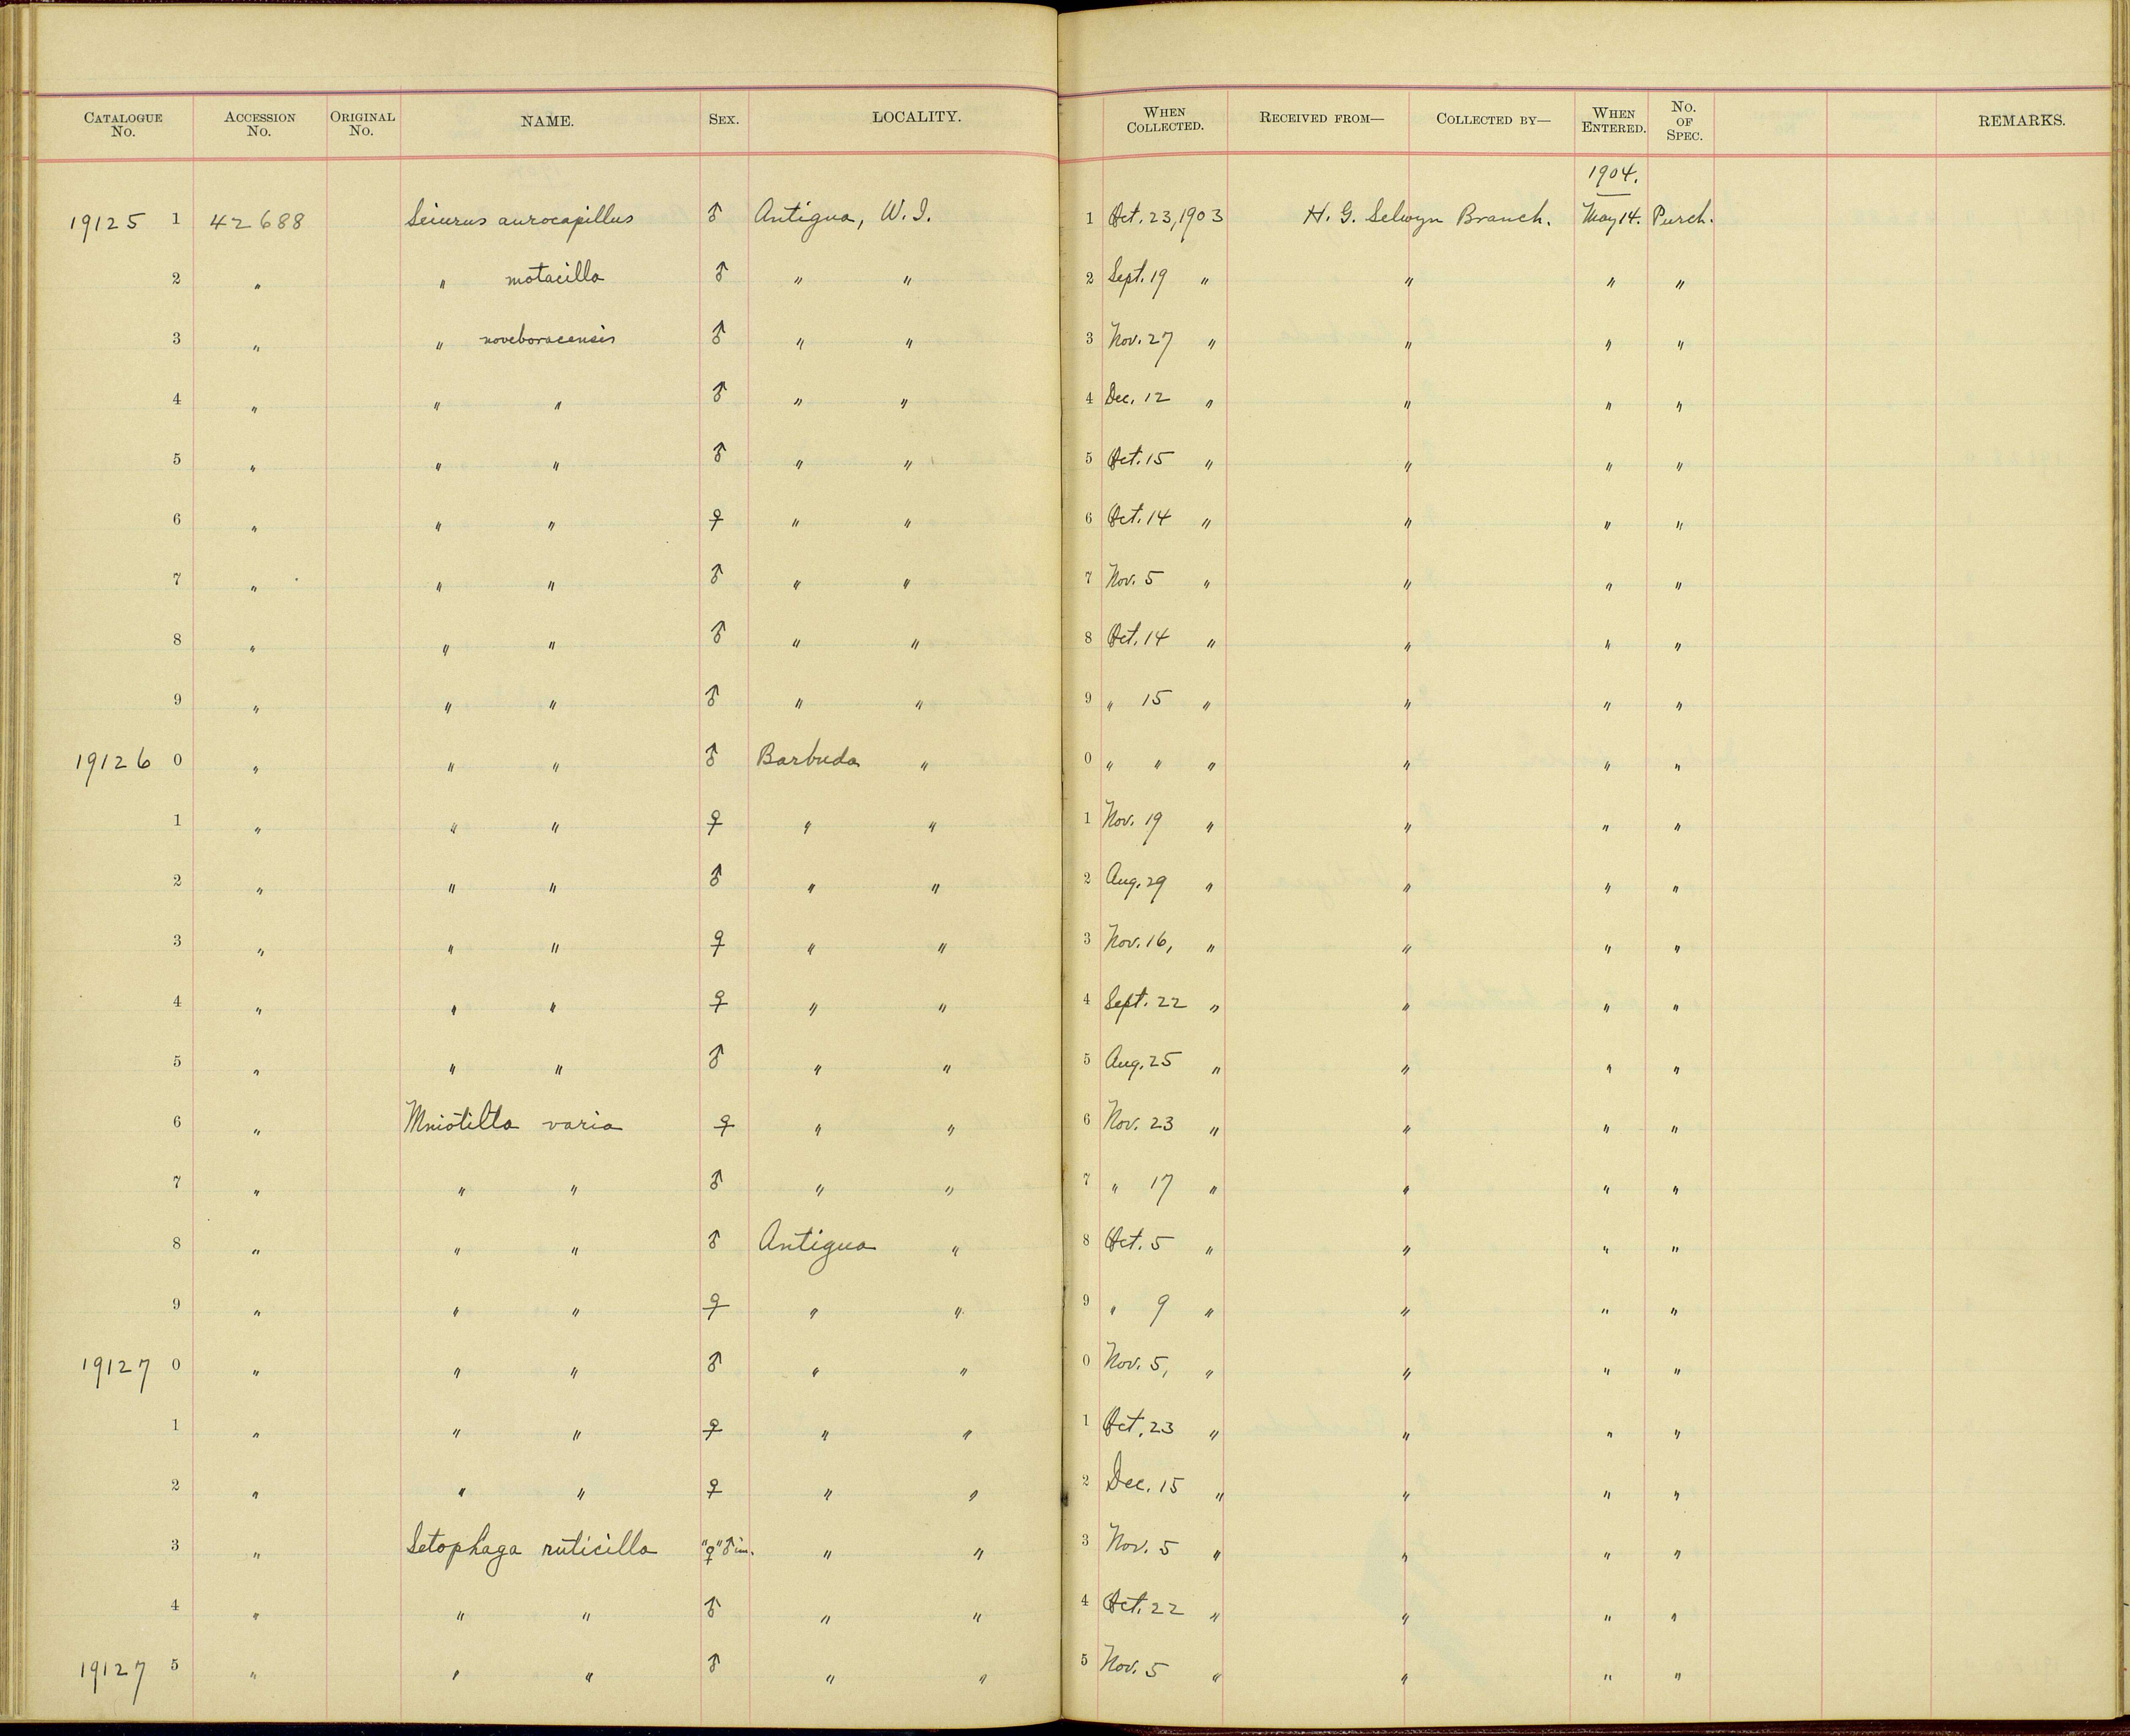 CATALOGUE No. ACCESSION No. ORIGINAL No. NAME. SEX. LOCALITY. WHEN COLLECTED. RECEIVED FROM— COLLECTED BY— WHEN ENTERED. No. OF SPEC. REMARKS.
1904.
19125 1 42688 Seiurus aurocapillus ♂ Antigua, W. I. 1 Oct. 23, 1903 H. G. Selwyn Branch. May 14. Purch.
2 " " motacilla ♂ " " 2 Sept. 19 " " " "
3 " " noveboracensis ♂ " " 3 Nov. 27 " " " "
4 " " " ♂ " " 4 Dec. 12 " " " "
5 " " " ♂ " " 5 Oct. 15 " " " "
6 " " " ♀ " " 6 Oct. 14 " " " "
7 " " " ♂ " " 7 Nov. 5 " " " "
8 " " " ♂ " " 8 Oct. 14 " " " "
9 " " " ♂ " " 9 " 15 " " " "
19126 0 " " " ♂ Barbuda " 0 " " " " " "
1 " " " ♀ " " 1 Nov. 19 " " " "
2 " " " ♂ " " 2 Aug. 29 " " " "
3 " " " ♀ " " 3 Nov. 16, " " " "
4 " " " ♀ " " 4 Sept. 22 " " " "
5 " " " ♂ " " 5 Aug. 25 " " " "
6 " Mniotilta varia ♀ " " 6 Nov. 23 " " " "
7 " " " ♂ " " 7 " 17 " " " "
8 " " " ♂ Antigua " 8 Oct. 5 " " " "
9 " " " ♀ " " 9 " 9 " " " "
19127 0 " " " ♂ " " 0 Nov. 5, " " " "
1 " " " ♀ " " 1 Oct. 23 " " " "
2 " " " ♀ " " 2 Dec. 15 " " " "
3 " Setophaga ruticilla "♀" ♂ im. " " 3 Nov. 5 " " " "
4 " " " ♂ " " 4 Oct. 22 " " " "
19127 5 " " " ♂ " " 5 Nov. 5 " " " "